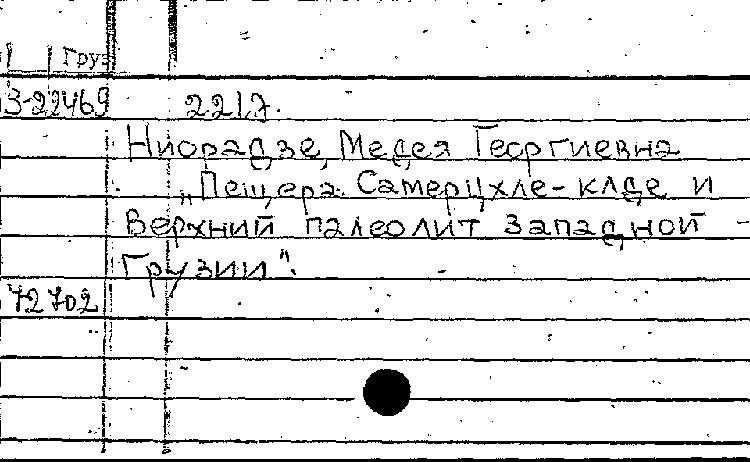 Груз
3-22469 221,7.
Ниорадзе, Медея Георгиевна
„Пещера Самерцхле-клде и
Верхний палеолит Западной
Грузии".
72702